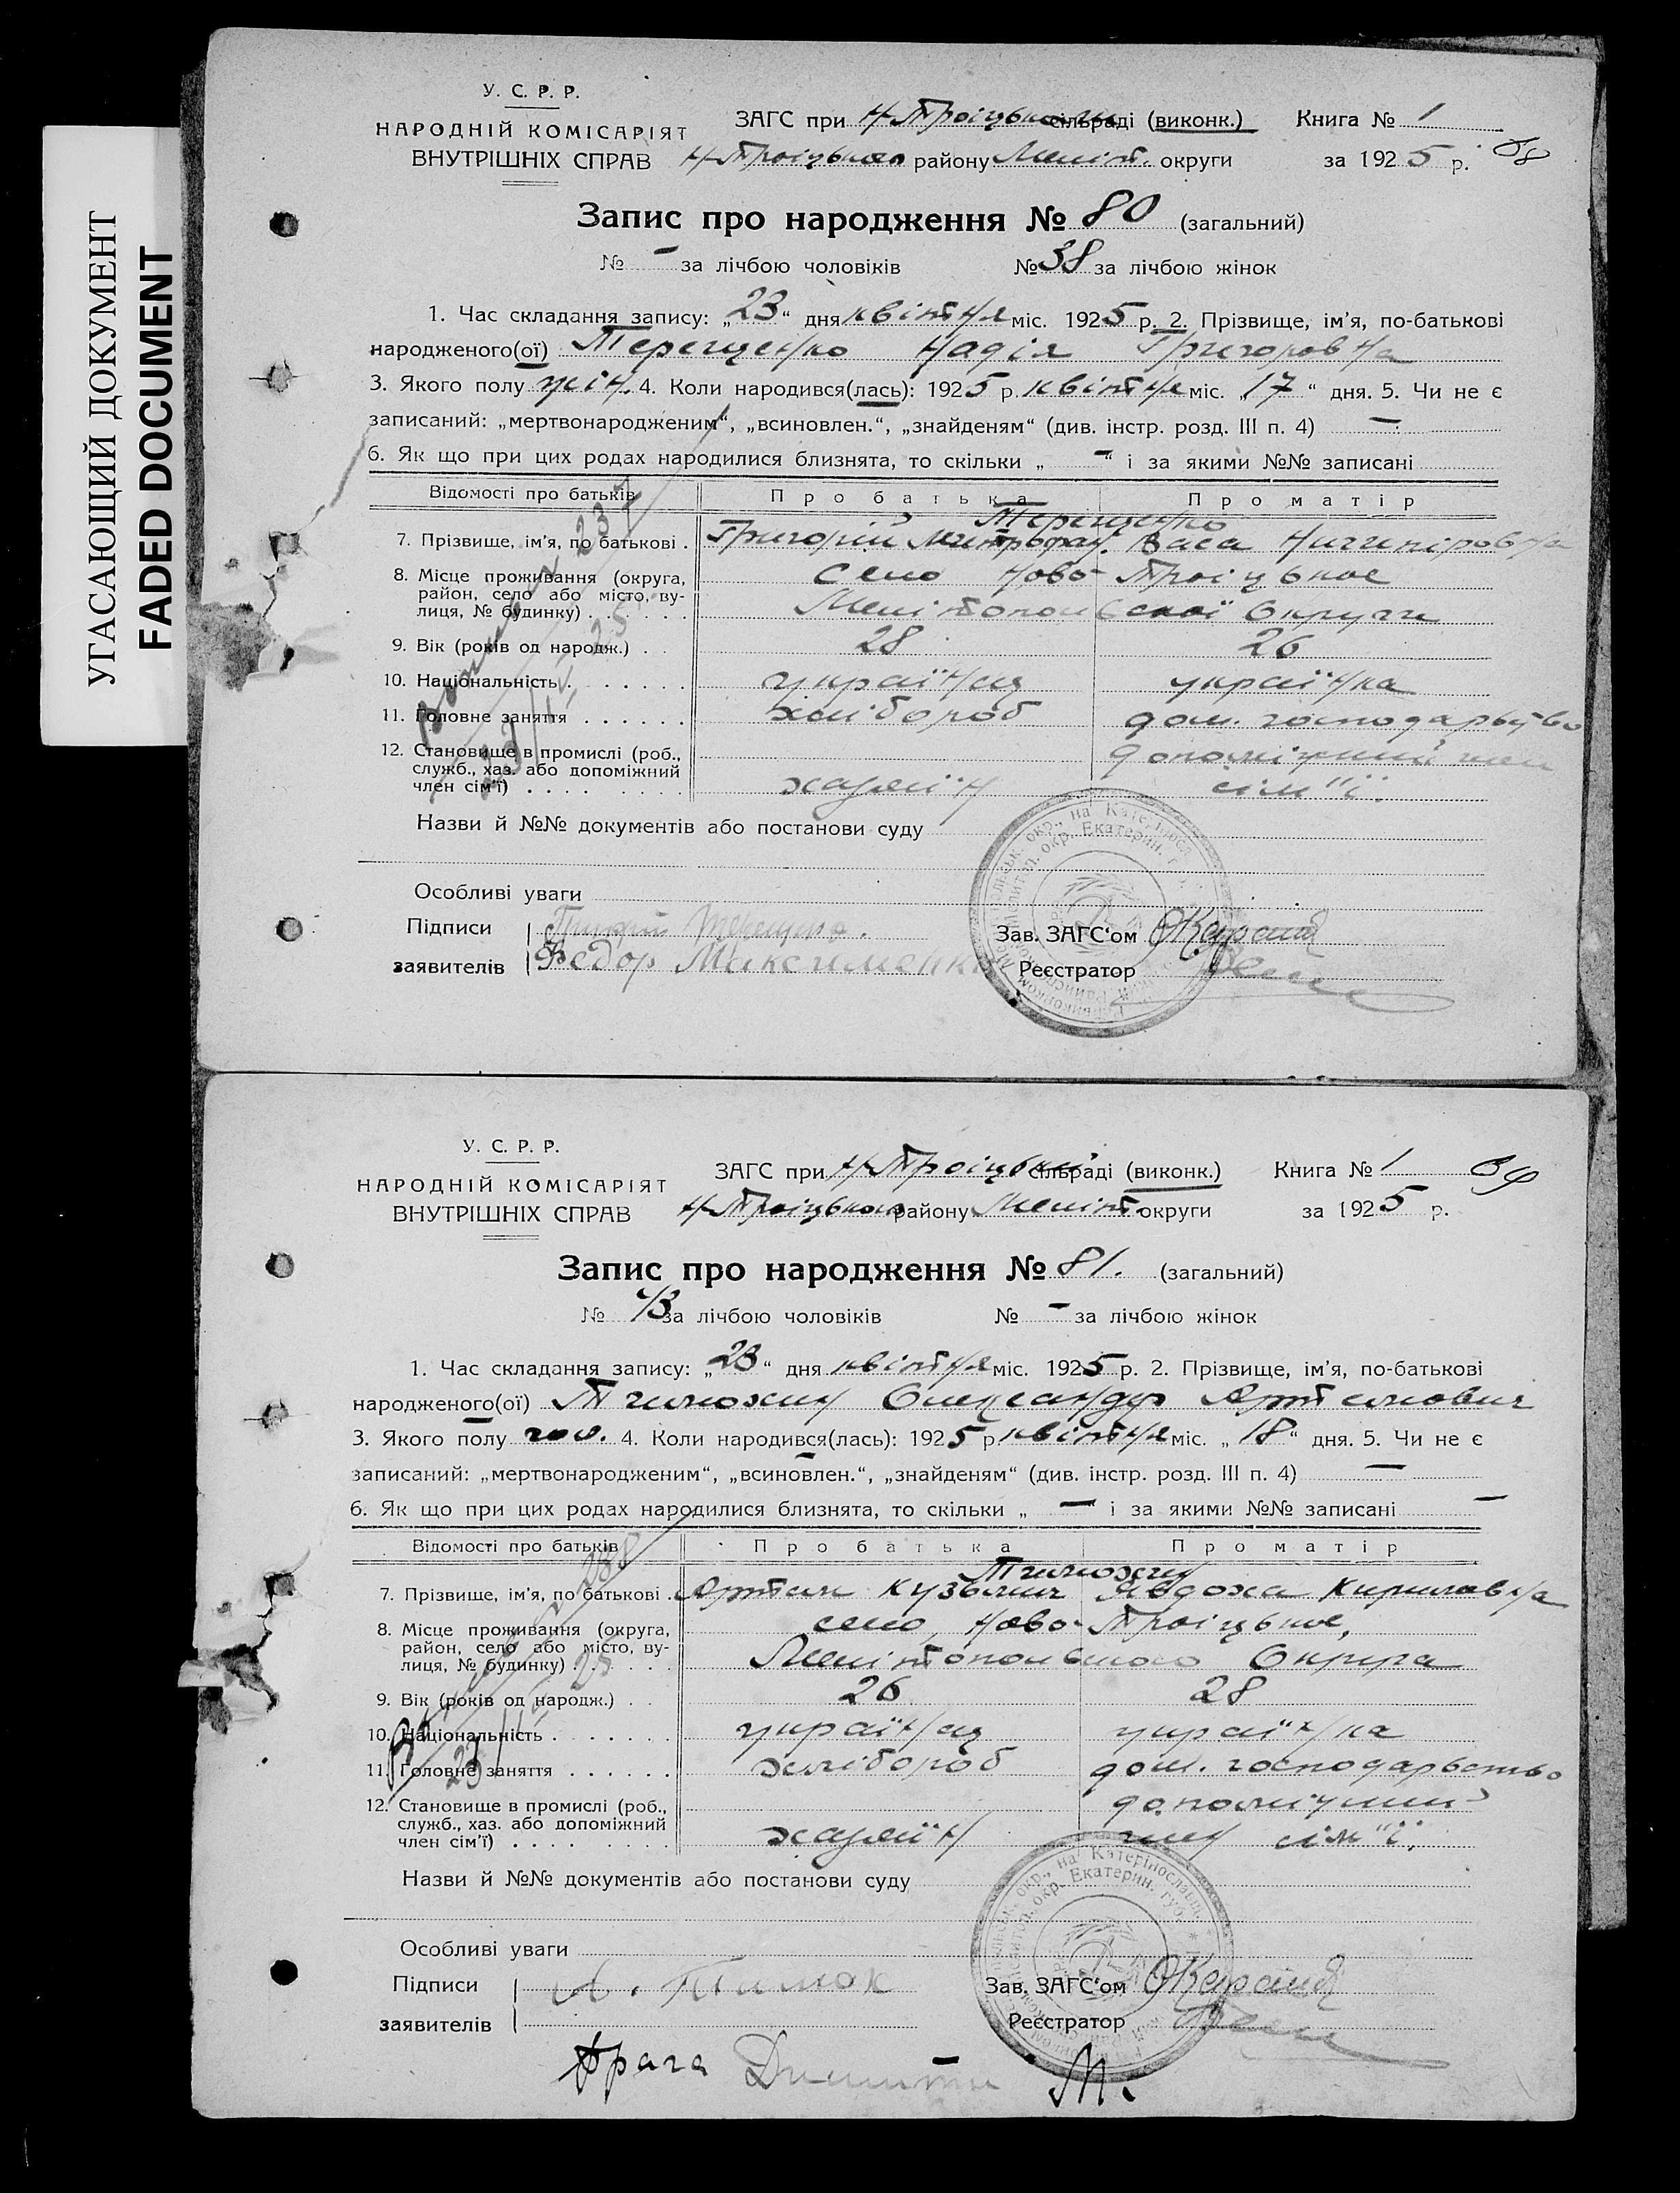 УГАСАЮЩИЙ ДОКУМЕНТ
FADED DOCUMENT
У. С. Р. Р.
НАРОДНІЙ КОМІСАРІЯТ
ВНУТРІШНІХ СПРАВ
ЗАГС при Н-Троіцьком сільраді (виконк.) Книга № 1
Н-Троіцького району Меліт. округи за 1925 р.
Запис про народження № 80 (загальний)
№ - за лічбою чоловіків № 38 за лічбою жінок
1. Час складання запису: „23“ дня квітня міс. 1925 р. 2. Прізвище, ім’я, по-батькові
народженого(ої) Терещенко Надія Григоровна
3. Якого полу жін. 4. Коли народився(лась): 1925 р. квітня міс. „17“ дня. 5. Чи не є
записаний: „мертвонародженим“, „всиновлен.“, „знайденям“ (див. інстр. розд. III п. 4) —
6. Як що при цих родах народилися близнята, то скільки „-“ і за якими №№ записані
Відомості про батьків Про батька Про матір
Терещенко
7. Прізвище, ім’я, по батькові . Григорій Митрофан. Васа Ничипіровна
8. Місце проживання (округа, район, село або місто, вулиця, № будинку) село Ново-Троіцькое
Мелітопольскої Округи
9. Вік (років од народж.) . . 28 26
10. Національність . . . . . . . українец українка
11. Головне заняття . . . . . . хлібороб дом. господарьство
12. Становище в промислі (роб., служб., хаз. або допоміжний член сім’ї) . . . . хазяїн допоміжний член
сім"ї.
Назви й №№ документів або постанови суду
Особливі уваги
Підписи Григорій Терещенко. Зав. ЗАГС‘ом
заявителів Федор Максименко Реєстратор
У. С. Р. Р.
НАРОДНІЙ КОМІСАРІЯТ
ВНУТРІШНІХ СПРАВ
ЗАГС при Н-Троіцькій сільраді (виконк.) Книга № 1
Н-Троіцького району Меліт. округи за 1925 р.
Запис про народження № 81. (загальний)
№ 43 за лічбою чоловіків № - за лічбою жінок
1. Час складання запису: „23“ дня квітня міс. 1925 р. 2. Прізвище, ім’я, по-батькові
народженого(ої) Тимохин Олександр Артемович
3. Якого полу чол. 4. Коли народився(лась): 1925 р. квітня міс. „18“ дня. 5. Чи не є
записаний: „мертвонародженим“, „всиновлен.“, „знайденям“ (див. інстр. розд. III п. 4) —
6. Як що при цих родах народилися близнята, то скільки „—“ і за якими №№ записані —
Відомості про батьків Про батька Про матір
Тимохин
7. Прізвище, ім’я, по батькові . Артем Кузьмич Явдоха Кириловна
8. Місце проживання (округа, район, село або місто, вулиця, № будинку) село, Ново-Троіцькое,
Мелітопольского Округа
9. Вік (років од народж.) . . 26 28
10. Національність . . . . . . . українец українка
11. Головне заняття . . . . . . хлібороб дом. господарьство
12. Становище в промислі (роб., служб., хаз. або допоміжний член сім’ї) . . . . хазяїн допоміжний
член сім"ї.
Назви й №№ документів або постанови суду
Особливі уваги
Підписи А. Тимох Зав. ЗАГС‘ом
заявителів Реєстратор
М.